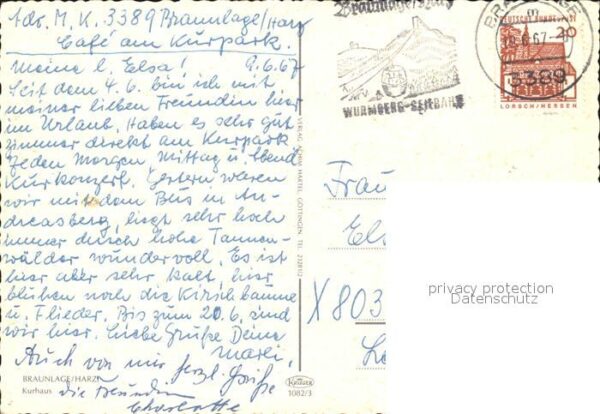 Adr. M. K. 3389 Braunlage/Harz
Café am Kurpark.
Meine l. Elsa! 9.6.67
Seit dem 4.6. bin ich mit
meiner lieben Freundin hier
im Urlaub. Haben es sehr gut
Zimmer direkt am Kurpark
jeden Morgen Mittag u. Abend
Kurkonzert. Gestern waren
wir mit dem Bus in An-
dreasberg, liegt sehr hoch
immer durch hohe Tannen-
wälder wundervoll. Es ist
hier aber sehr kalt, hier
blühen noch die Kirschbäume
u. Flieder. Bis zum 20.6. sind
wir hier. Liebe Grüße Deine
Marei,
Auch von mir herzl. Grüße
die Freundin
Charlotte
BRAUNLAGE/HARZ
Kurhaus
1082/3
Braunlage/Harz
WURMBERG-SEILBAHN
BRAUNLAGE
3389
DEUTSCHE BUNDESPOST
20
LORSCH/HESSEN
Frau
X 803
privacy protection
Datenschutz